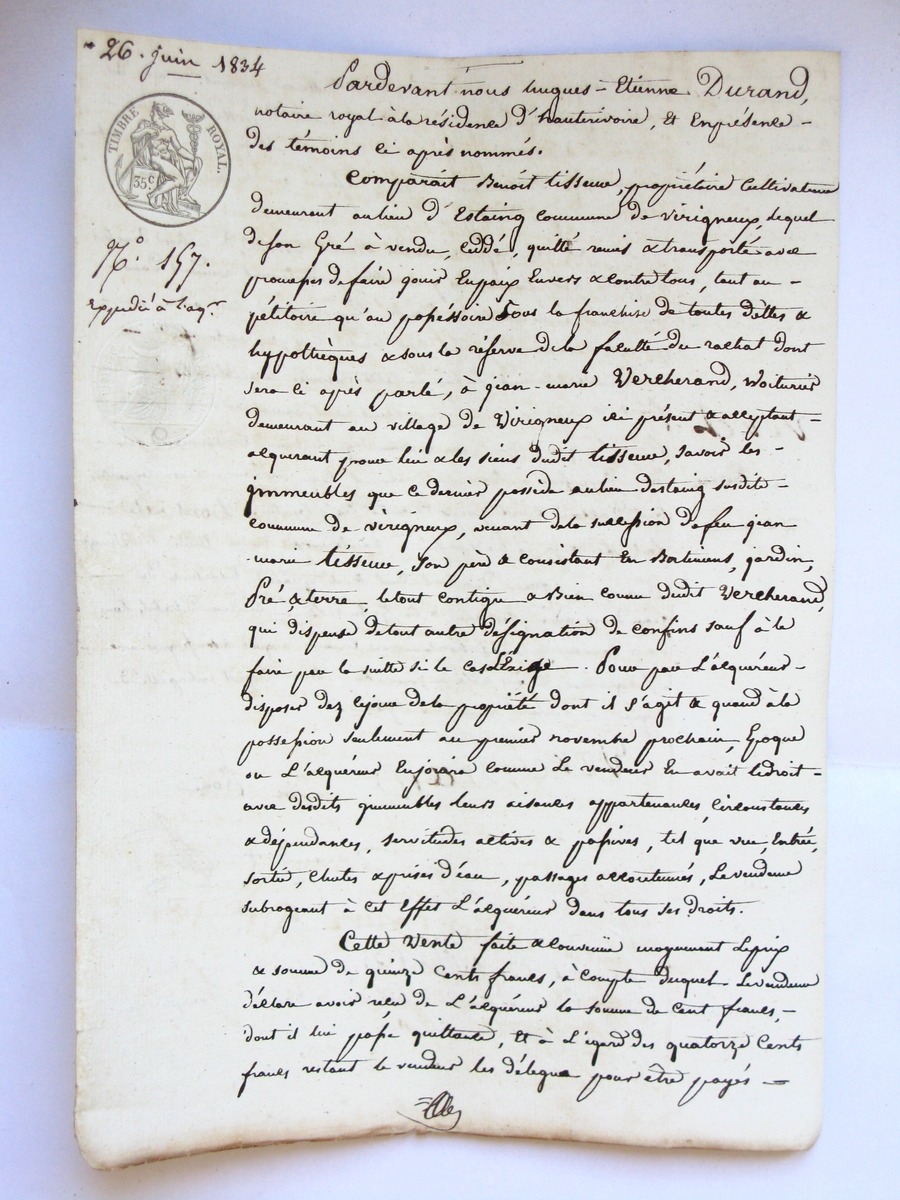 26. juin 1834
TIMBRE ROYAL.
35 c
N.° 157.
expédié à l'aqr
Pardevant nous hugues-Etienne Durand,
notaire royal à la résidence d'hauterivoire, Et En présence -
des témoins ci après nommés.
Comparait Benoit tisseur, propriétaire Cultivateur
demeurant au lieu d'Estaing commune de virigneux, lequel
de son Gré à vendu, cédé, quitté remis & transporté avec
promesses de faire jouir En paix Envers & contre tous, tant au -
pétitoire qu'au possessoire Sous la franchise de toutes dettes &
hypothèques & sous la réserve de la faculté du rachat dont
sera ci après parlé, à jean-marie Vercherand, Voiturier
demeurant au village de Virigneux ici présent & acceptant -
acquerant pour lui & les siens dudit tisseur, Savoir les -
jmmeubles que ce dernier possède au lieu destaing susdite -
commune de virigneux, venant de la succession de feu jean
marie tisseur, Son père & consistant En Batimens, jardin,
Pré, & terre, le tout contigu & Bien connu dudit Vercherand,
qui dispense de tout autre désignation de confins sauf à le
faire par la suitte si le cas l'Exige. Pour par L'acquéreur -
disposer dez cejour de la propriété dont il s'agit & quand à la
possession seulement au premier novembre prochain, Epoque
ou L'acquéreur En jouira comme Le vendeur En avait le droit -
avec desdits jmmeubles leurs aisances appartenances, circonstances
& dépendances, servitudes actives & passives, tel que vue, Entrée,
sortie, chutes & prises d'eau, passages accoutumés, Le vendeur
subrogeant à cet Effet L'acquéreur dans tous ses droits.
Cette Vente faite & convenue moyennant Le prix
& somme de quinze Cents francs, à compte duquel Le vendeur
déclare avoir reçu de L'acquéreur la somme de Cent francs, -
dont il lui passe quittance, Et à L'égard des quatorze Cents
francs restant le vendeur les délegue pour être payés -